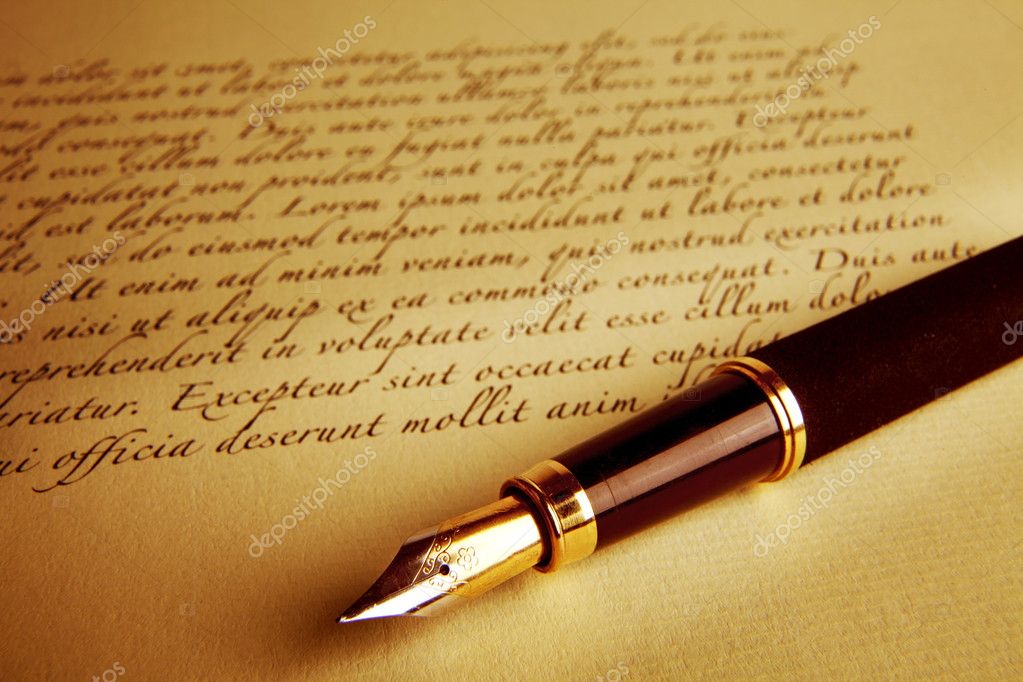 dolor sit amet, consectetur adipisicing elit, sed do
incididunt ut labore et dolore magna aliqua. Ut enim ad
quis nostrud exercitation ullamco laboris nisi ut aliquip
consequat. Duis aute irure dolor in reprehenderit
esse cillum dolore eu fugiat nulla pariatur. Excepteur
cupidatat non proident, sunt in culpa qui officia deserunt
id est laborum. Lorem ipsum dolor sit amet, consectetur
sed do eiusmod tempor incididunt ut labore et dolore
Ut enim ad minim veniam, quis nostrud exercitation
nisi ut aliquip ex ea commodo consequat. Duis aute
reprehenderit in voluptate velit esse cillum dolo
riatur. Excepteur sint occaecat cupidat
ui officia deserunt mollit anim i
depositphotos
depositphotos
depositphotos
depositphotos
depositphotos
depositphotos